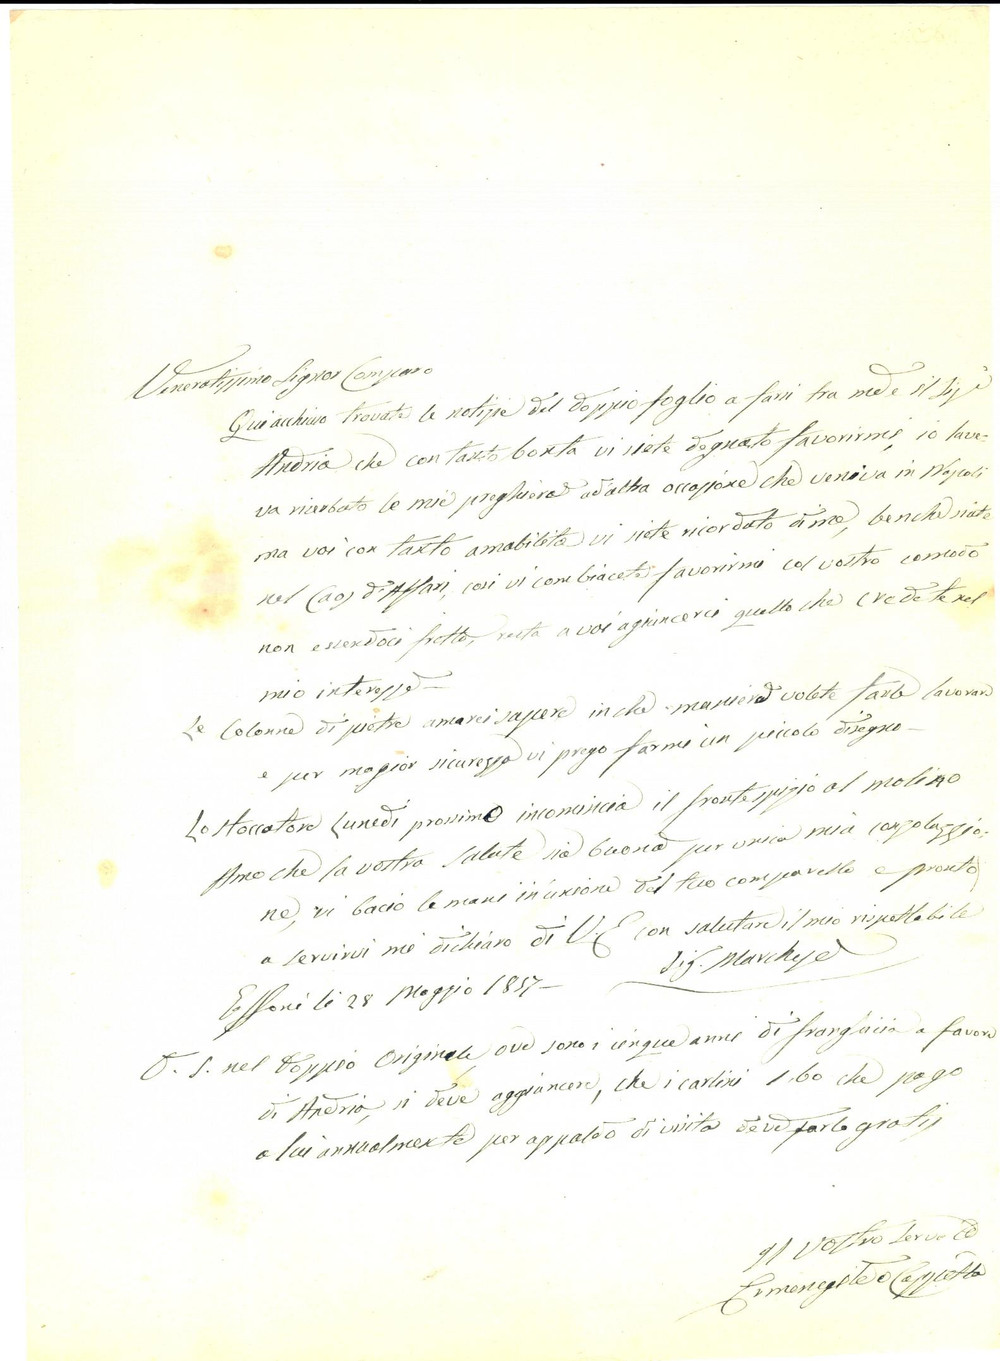 Veneratissimo Signor Compare
Qui acchiuso trovate le notizie del doppio foglio a farsi tra me e il Sig.r
Andria che con tanta bontà vi siete degnato favorirmi, io l'ave-
va ricerbato le mie preghiere ad altra occasione che veniva in Napoli
ma voi con tanto amabiletà vi siete ricordato di me, benche siate
nel Caos d'Affari, così vi combiacete favorirmi col vostro comodo
non essendoci fretta, resta a voi agiuncerci quello che credete nel
mio interesse —
Le Colonne di pietra amarei sapere in che maniera volete farle lavorare
e per magior sicurezza vi prego farmi un piccolo disegno —
Lo stoccatore Lunedì prossimo incomincia il frontespizio al molino
Amo che la vostra salute sia buona per unica mia conzolazzio-
ne, vi bacio le mani in unione del tuo comparello e pronto
a servirvi mi dichiaro di V.E. con salutare il mio rispettabile
Sig. Marchese
li 28 Maggio 1857 —
P. S. nel doppio Originale ove sono i cinque anni di franghiia a favore
di Andria, si deve aggiuncere, che i carlini 160 che pago
a lui annualmente per appaldo di visita deve farle gratis
Il vostro servo ed
Ermenegildo